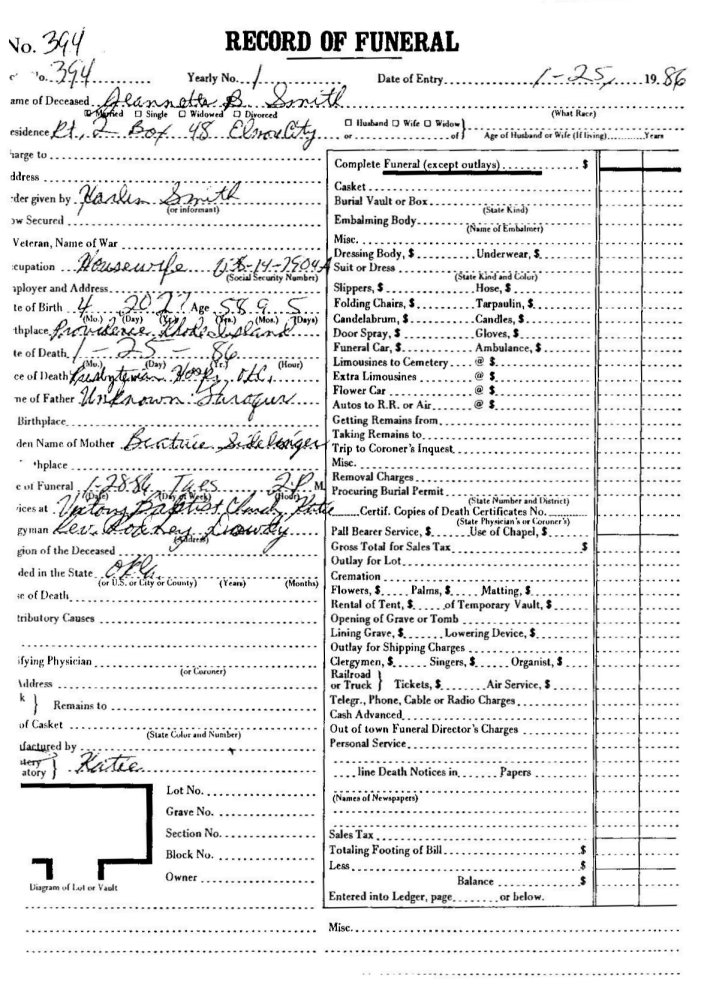 No. 394
RECORD OF FUNERAL
No. 394 Yearly No. 1 Date of Entry 1-25, 1986
ame of Deceased Jeannette B. Smith (What Race)
Married Single Widowed Divorced Husband Wife Widow
esidence Rt, 2 Box 48 Elmore City or of Age of Husband or Wife (If living) Years
harge to
ddress
der given by Harlin Smith
(or informant)
ow Secured
Veteran, Name of War
cupation Housewife
(Social Security Number)
mployer and Address
te of Birth 4 20 27 Age 58 9 5
(Mo.) (Day) (Yr.) (Yrs.) (Mos.) (Days)
thplace Providence Rhode Island
te of Death 1-25-86
(Mo.) (Day) (Yr.) (Hour)
ce of Death Presbyterian Hosp,
me of Father Unknown
Birthplace
den Name of Mother Beatrice
thplace
e of Funeral 1-28-86 Tues 2 P. M.
(Date) (Day of Week) (Hour)
ices at Baptist Katie
gyman Rev. Rodney
(Address)
gion of the Deceased
ded in the State Okla
(or U.S. or City or County) (Years) (Months)
se of Death
tributory Causes
ifying Physician
(or Coroner)
Address
k } Remains to
of Casket
(State Color and Number)
ufactured by
etery
atory } Katie
Lot No.
Grave No.
Section No.
Block No.
Owner
Diagram of Lot or Vault
Complete Funeral (except outlays) $
Casket
Burial Vault or Box
(State Kind)
Embalming Body
(Name of Embalmer)
Misc.
Dressing Body, $ Underwear, $
Suit or Dress
(State Kind and Color)
Slippers, $ Hose, $
Folding Chairs, $ Tarpaulin, $
Candelabrum, $ Candles, $
Door Spray, $ Gloves, $
Funeral Car, $ Ambulance, $
Limousines to Cemetery @ $
Extra Limousines @ $
Flower Car @ $
Autos to R.R. or Air @ $
Getting Remains from
Taking Remains to
Trip to Coroner's Inquest
Misc.
Removal Charges
Procuring Burial Permit
(State Number and District)
Certif. Copies of Death Certificates No.
(State Physician's or Coroner's)
Pall Bearer Service, $ Use of Chapel, $
Gross Total for Sales Tax $
Outlay for Lot
Cremation
Flowers, $ Palms, $ Matting, $
Rental of Tent, $ of Temporary Vault, $
Opening of Grave or Tomb
Lining Grave, $ Lowering Device, $
Outlay for Shipping Charges
Clergymen, $ Singers, $ Organist, $
Railroad
or Truck } Tickets, $ Air Service, $
Telegr., Phone, Cable or Radio Charges
Cash Advanced
Out of town Funeral Director's Charges
Personal Service
line Death Notices in Papers
(Names of Newspapers)
Sales Tax
Totaling Footing of Bill $
Less $
Balance $
Entered into Ledger, page or below.
Misc.